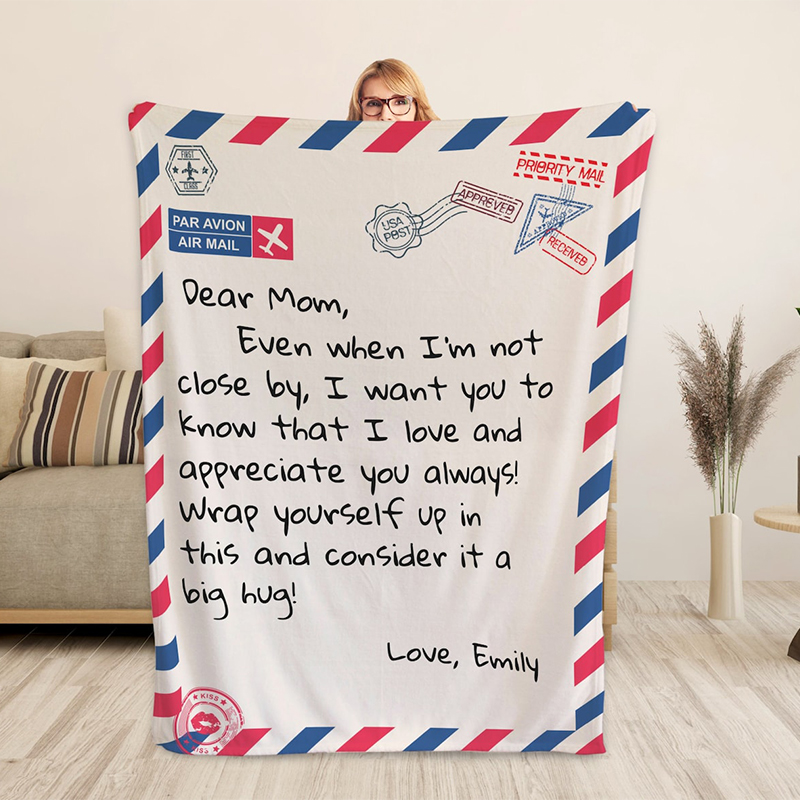 FIRST
CLASS
PRIORITY MAIL
PAR AVION
AIR MAIL
USA
POST
APPREVED
RECEIVED
Dear Mom,
Even when I'm not
close by, I want you to
know that I love and
appreciate you always!
Wrap yourself up in
this and consider it a
big hug!
Love, Emily
KISS
KISS